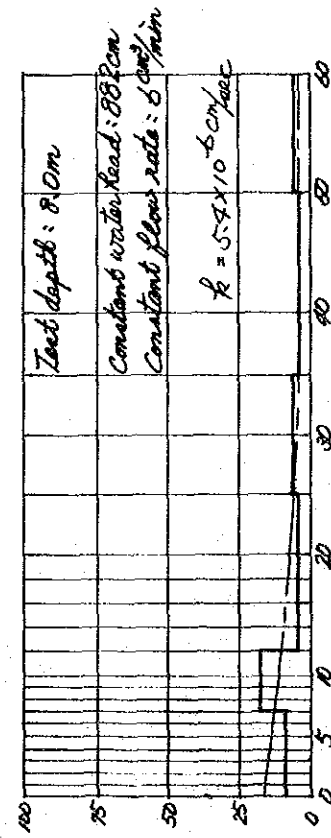 Test depth: 8.0m
Constant water head: 882cm
Constant flow rate: 5 cm³/min
k = 5.4×10⁻⁶ cm/sec
100
75
50
25
0
0 5 10 20 30 40 50 60